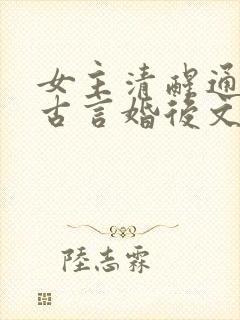 女主清醒通
古言婚後文
陸志霖